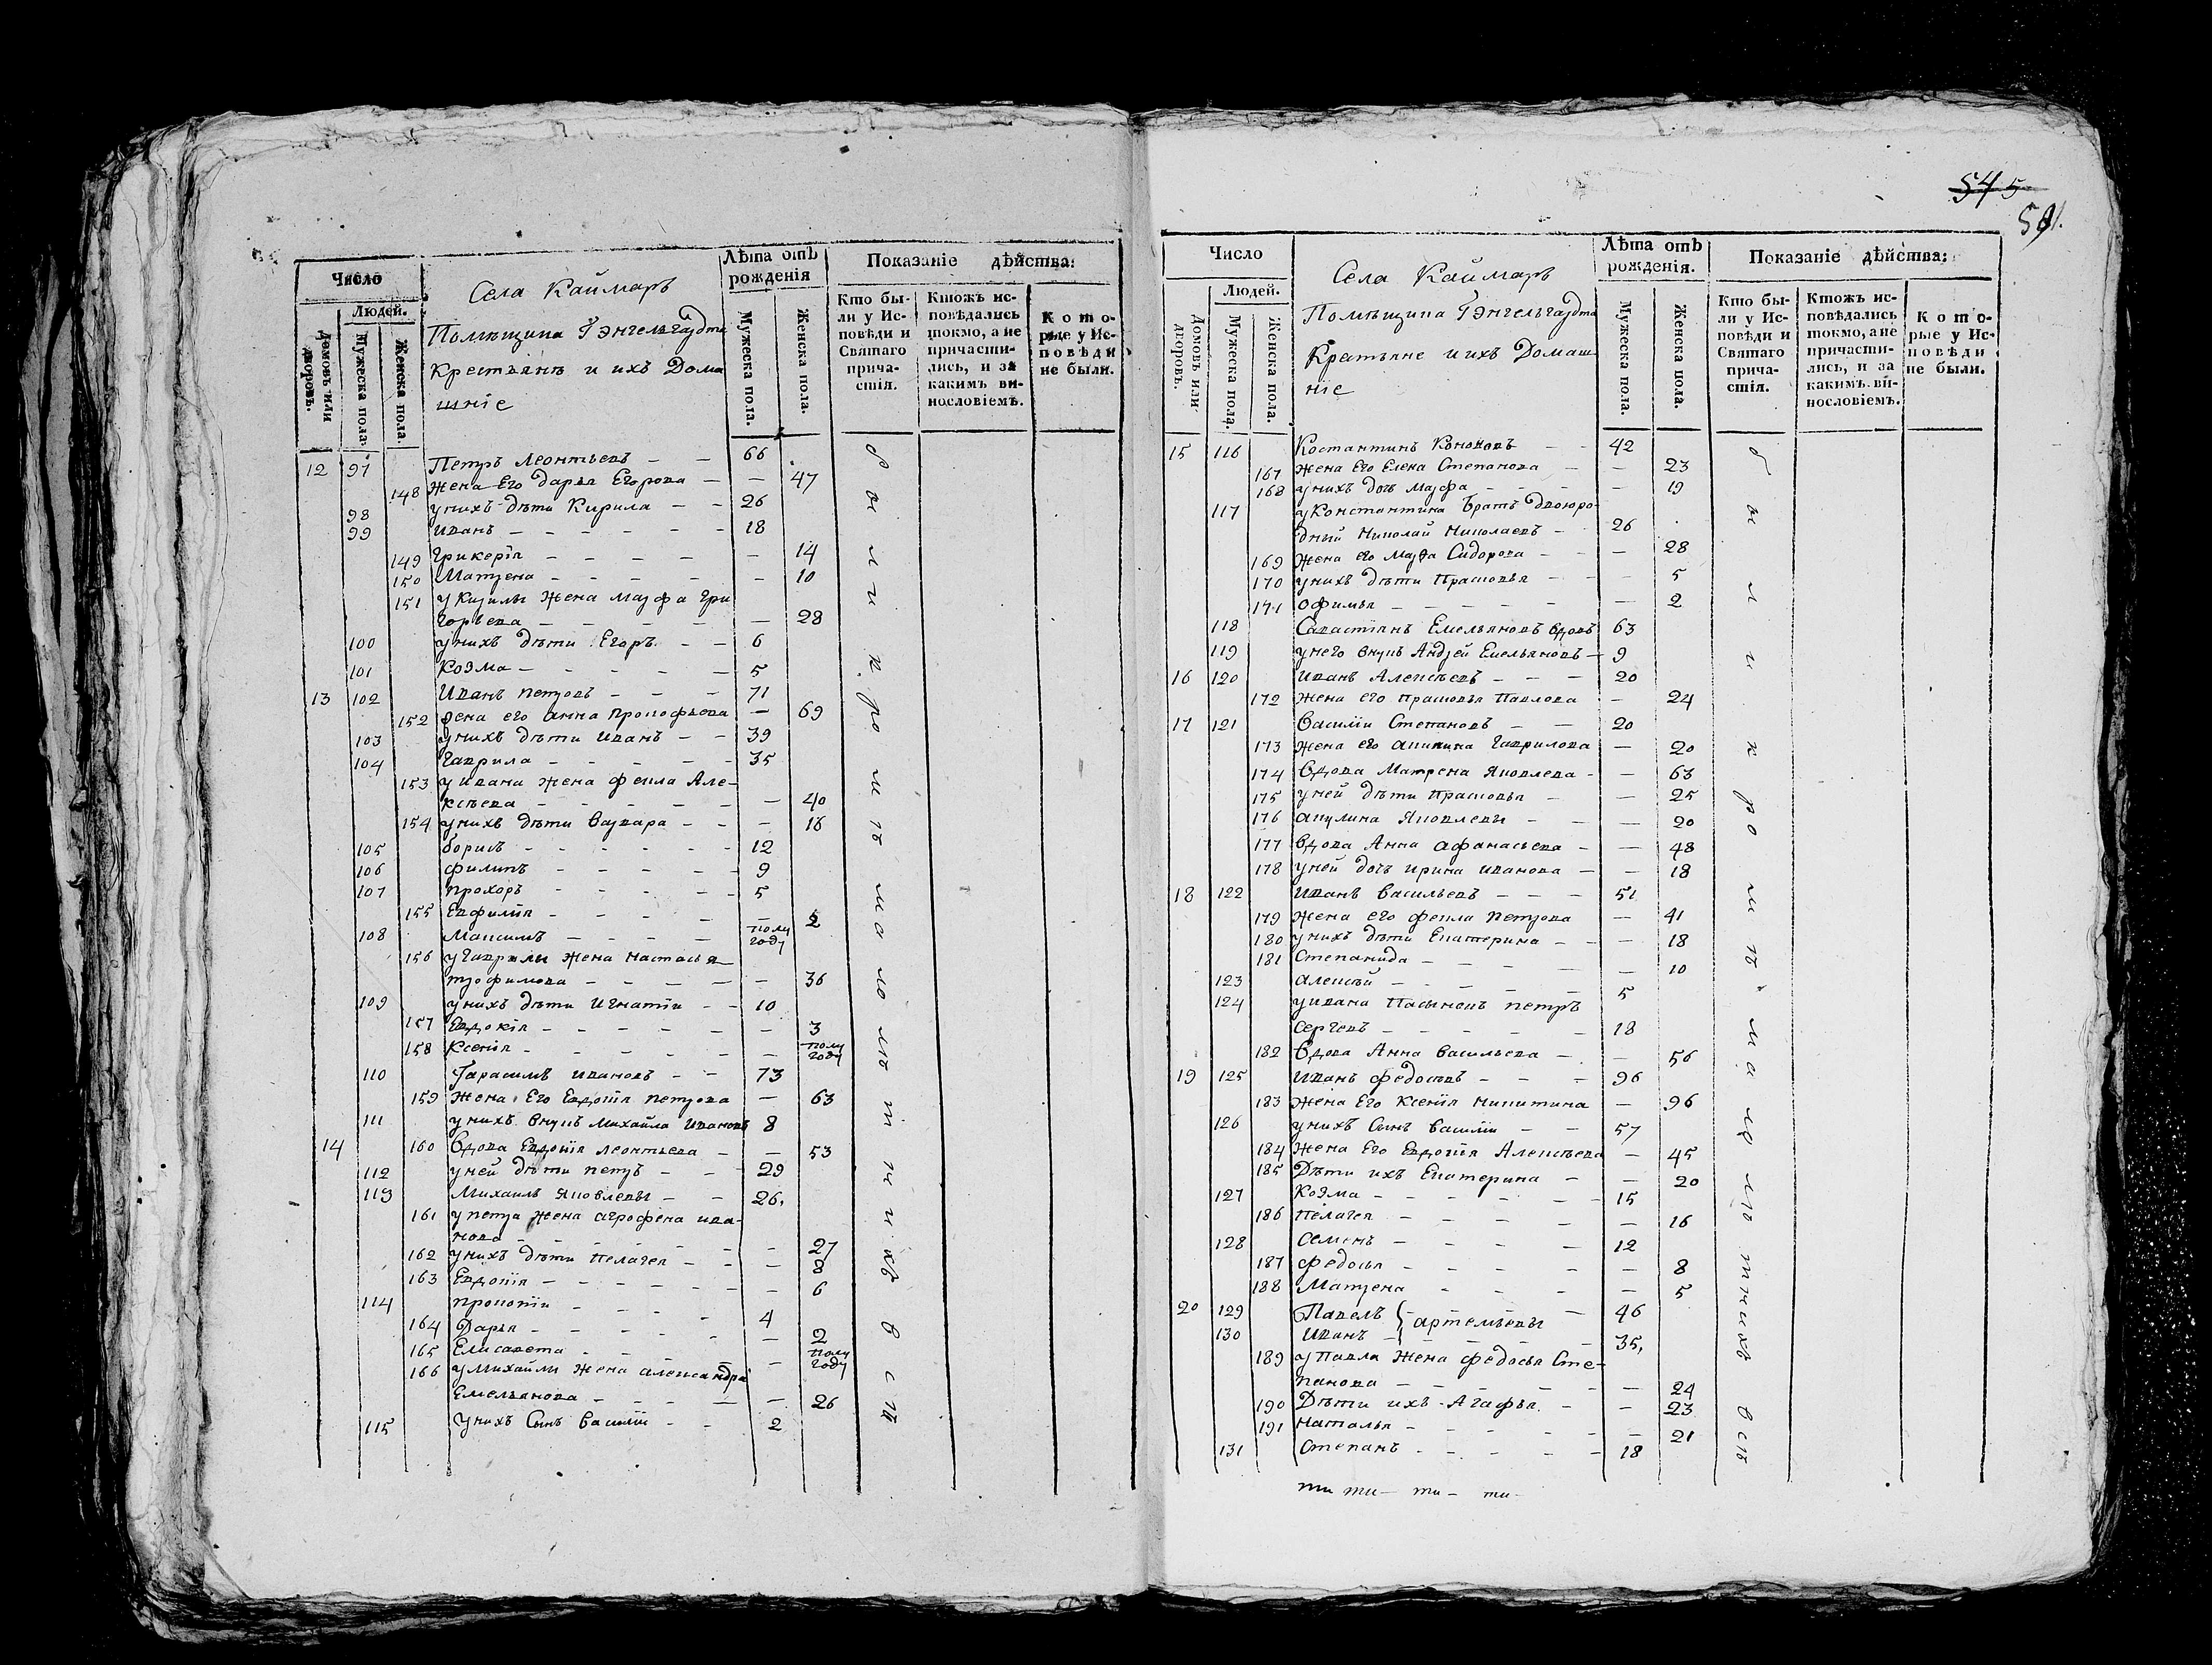 545
Число
Села Каймаръ
Лѣта отъ рожденія
Показаніе дѣйства:
Людей.
Помѣщика Гэнгельгардта
Крестьянѣ и ихъ Дома
шніе
Домовъ или дворовъ.
Мужеска пола.
Женска пола.
Мужеска пола.
Женска пола.
Кто бы-
ли у Ис-
повѣди и
Святаго
прича-
стія.
Ктожъ ис-
повѣдались
токмо, а не
причасти-
лись, и за
какимъ ви-
нословіемъ.
Кото-
рые у Ис-
повѣди
не были.
12 97 Петръ Леонтьевъ — — 66
148 Жена Его Дарья Егорова — — 47
98 у нихъ дѣти Кирила — — 26
99 Иванъ — — — — 18
149 Гликерія — — — — — 14
150 Матрена — — — — — 10
151 у Кирилы Жена Марфа Гри
горьева — — — — — 28
100 у нихъ дѣти Егоръ — — 6
101 Козма — — — — — 5
13 102 Иванъ Петровъ — — — 71
152 жена его Анна Прокофьева — 69
103 у нихъ дѣти Иванъ — — 39
104 Гаврила — — — — — 35
153 у Ивана жена Фекла Але-
ксѣева — — — — — — 40
154 у нихъ дѣти Варвара — — — 16
105 борисъ — — — — — — 12
106 филипъ — — — — — 9
107 прохоръ — — — — 5
155 Евфимія — — — — — 2
108 Максимъ — — — — полу
году
156 у Гаврилы Жена Настасья
трофимова — — — — — 36
109 у нихъ дѣти Игнатіи — — 10
157 Евдокія — — — — — — 3
158 Ксенія — — — — — — полу
году
110 Гарасимъ Ивановъ — — 73
159 Жена Его Евдокія Петрова — 63
111 у нихъ внукъ Михайла Ивановъ 8
14 160 Вдова Евдокія Леонтьева — — 53
112 у ней дѣти Петръ — — 29
113 Михаилъ Яковлевы — — 26.
161 у петра жена агрофена ива-
нова — — — — — — 27
162 у нихъ дѣти Пелагея — — — 8
163 Евдокія — — — — — 6
114 прокопіи — — — — 4
164 Дарья — — — — — 2
165 Елисавета — — — — полу
году
166 у Михайлы Жена александра
Емельянова — — — — — 26
115 У нихъ Сынъ Василіи — — 2
были к. роштъ

Число
Села Каймаръ
Лѣта отъ рожденія.
Показаніе дѣйства:
Людей.
Помѣщика Гэнгельгардта
Крестьяне и ихъ Домаш
ніе
Домовъ или дворовъ.
Мужеска пола.
Женска пола.
Мужеска пола.
Женска пола.
Кто бы-
ли у Ис-
повѣди и
Святаго
прича-
стія.
Ктожъ ис-
повѣдались
токмо, а не
причасти-
лись, и за
какимъ ви-
нословіемъ.
Кото-
рые у Ис-
повѣди
не были.
15 116 Костантинъ Кононовъ — — 42
167 Жена Его Елена Степанова — — 23
168 у нихъ дочь Марфа — — — — 19
117 у Константина Братъ Двоюро-
дный Николай Николаевъ — 26
169 Жена его Марфа Сидорова — — — 28
170 у нихъ дѣти Прасковья — — — 5
171 Офимья — — — — — — 2
118 Савастіянъ Емельяновъ вдовъ 63
119 у него внукъ Андрей Емельяновъ — 9
16 120 Иванъ Алексѣевъ — — — 20
172 Жена его Прасковья Павлова — 24
17 121 Василіи Степановъ — — 20
173 Жена его акилина Гаврилова — 20
174 Вдова Матрена Яковлева — — 63
175 у ней дѣти Прасковья — — 25
176 акулина Яковлевы — — — 20
177 Вдова Анна Афанасьева — — 48
178 у ней дочь Ирина Иванова — — 18
18 122 Иванъ Васильевъ — — — 51
179 Жена его Фекла Петрова — 41
180 у нихъ дѣти Екатерина — — — 18
181 Степанида — — — — — 10
123 алексѣй — — — — — 5
124 у Ивана Пасынокъ петръ
Сергевъ — — — — — 18
182 Вдова Анна Васильева — — — 56
19 125 Иванъ Федотовъ — — — 96
183 Жена Его Ксенія Никитина — 96
126 у нихъ Сынъ Василіи — — 57
184 Жена Его Евдокія Алексѣева — 45
185 Дѣти ихъ Екатерина — — 20
127 Козма — — — — — — 15
186 Пелагея — — — — — 16
128 Семенъ — — — — 12
187 Федосья — — — — — 8
188 Матрена — — — — — 5
20 129 Павелъ } артемьевы — 46
130 Иванъ — 35.
189 у Павла Жена Федосья Сте-
панова — — — — — — 24
190 Дѣти ихъ Агафья — — — 23
191 Наталья — — — — — — 21
131 Степанъ — — — — — 18
были
ти ти — ти — ти —